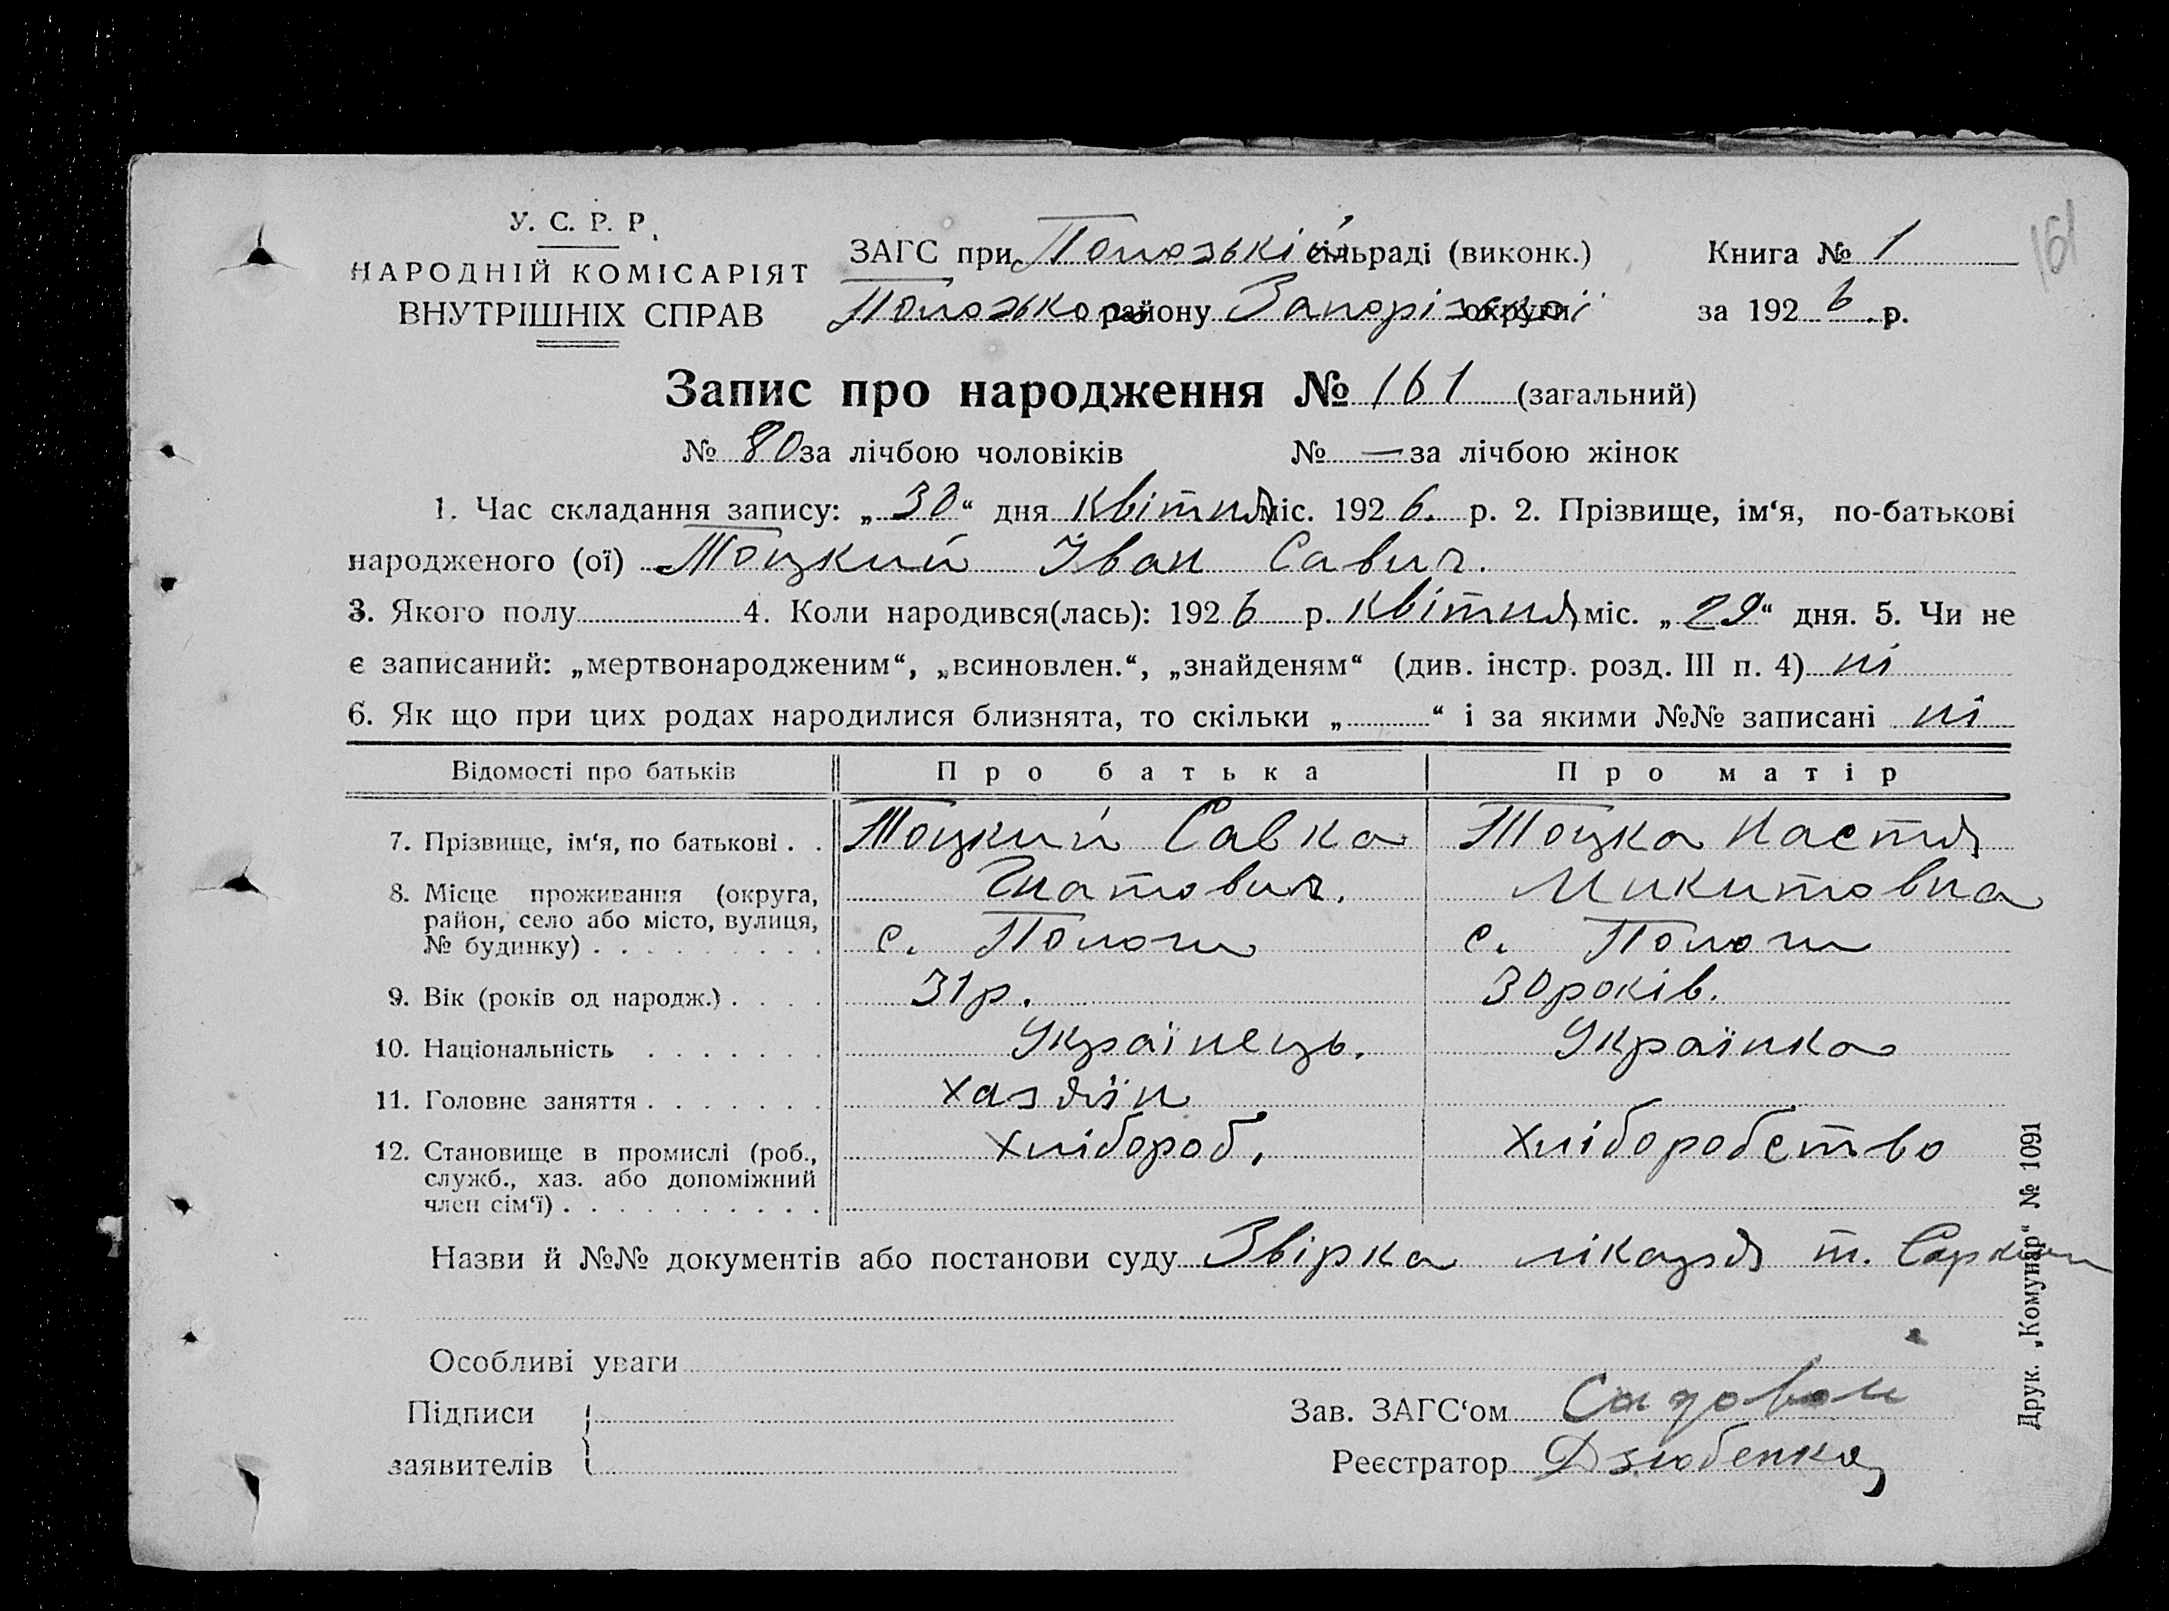 У. С. Р. Р.
НАРОДНІЙ КОМІСАРІЯТ
ВНУТРІШНІХ СПРАВ
ЗАГС при Положській сільраді (виконк.)
Книга № 1
району Запорізької округи
за 1926 р.
161
Запис про народження № 161 (загальний)
№ 80 за лічбою чоловіків № — за лічбою жінок
1. Час складання запису: „30“ дня квітня міс. 1926. р. 2. Прізвище, ім‘я, по-батькові
народженого (ої) Тоцкий Іван Савич.
3. Якого полу 4. Коли народився(лась): 1926 р. квітня міс. „29“ дня. 5. Чи не
є записаний: „мертвонародженим“, „всиновлен.“, „знайденям“ (див. інстр. розд. III п. 4) ні
6. Як що при цих родах народилися близнята, то скільки „ “ і за якими №№ записані ні
Відомості про батьків Про батька Про матір
7. Прізвище, ім‘я, по батькові . . Тоцкий Савка Тоцка Настя
Гнатович. Микитовна
8. Місце проживання (округа,
район, село або місто, вулиця,
№ будинку) . . . . . . . . . с. Пологи с. Пологи
9. Вік (років од народж.) . . . . 31 р. 30 років.
10. Національність . . . . . . . Українець. Українка
11. Головне заняття . . . . . . . хазяїн
12. Становище в промислі (роб., хлібороб. хліборобство
служб., хаз. або допоміжний
член сім‘ї) . . . . . . . . . .
Назви й №№ документів або постанови суду Звірка лікаря т.
Особливі уваги
Підписи
заявителів
Зав. ЗАГС‘ом Садовой
Реєстратор Дзюбенко
Друк. „Комунар“ № 1091